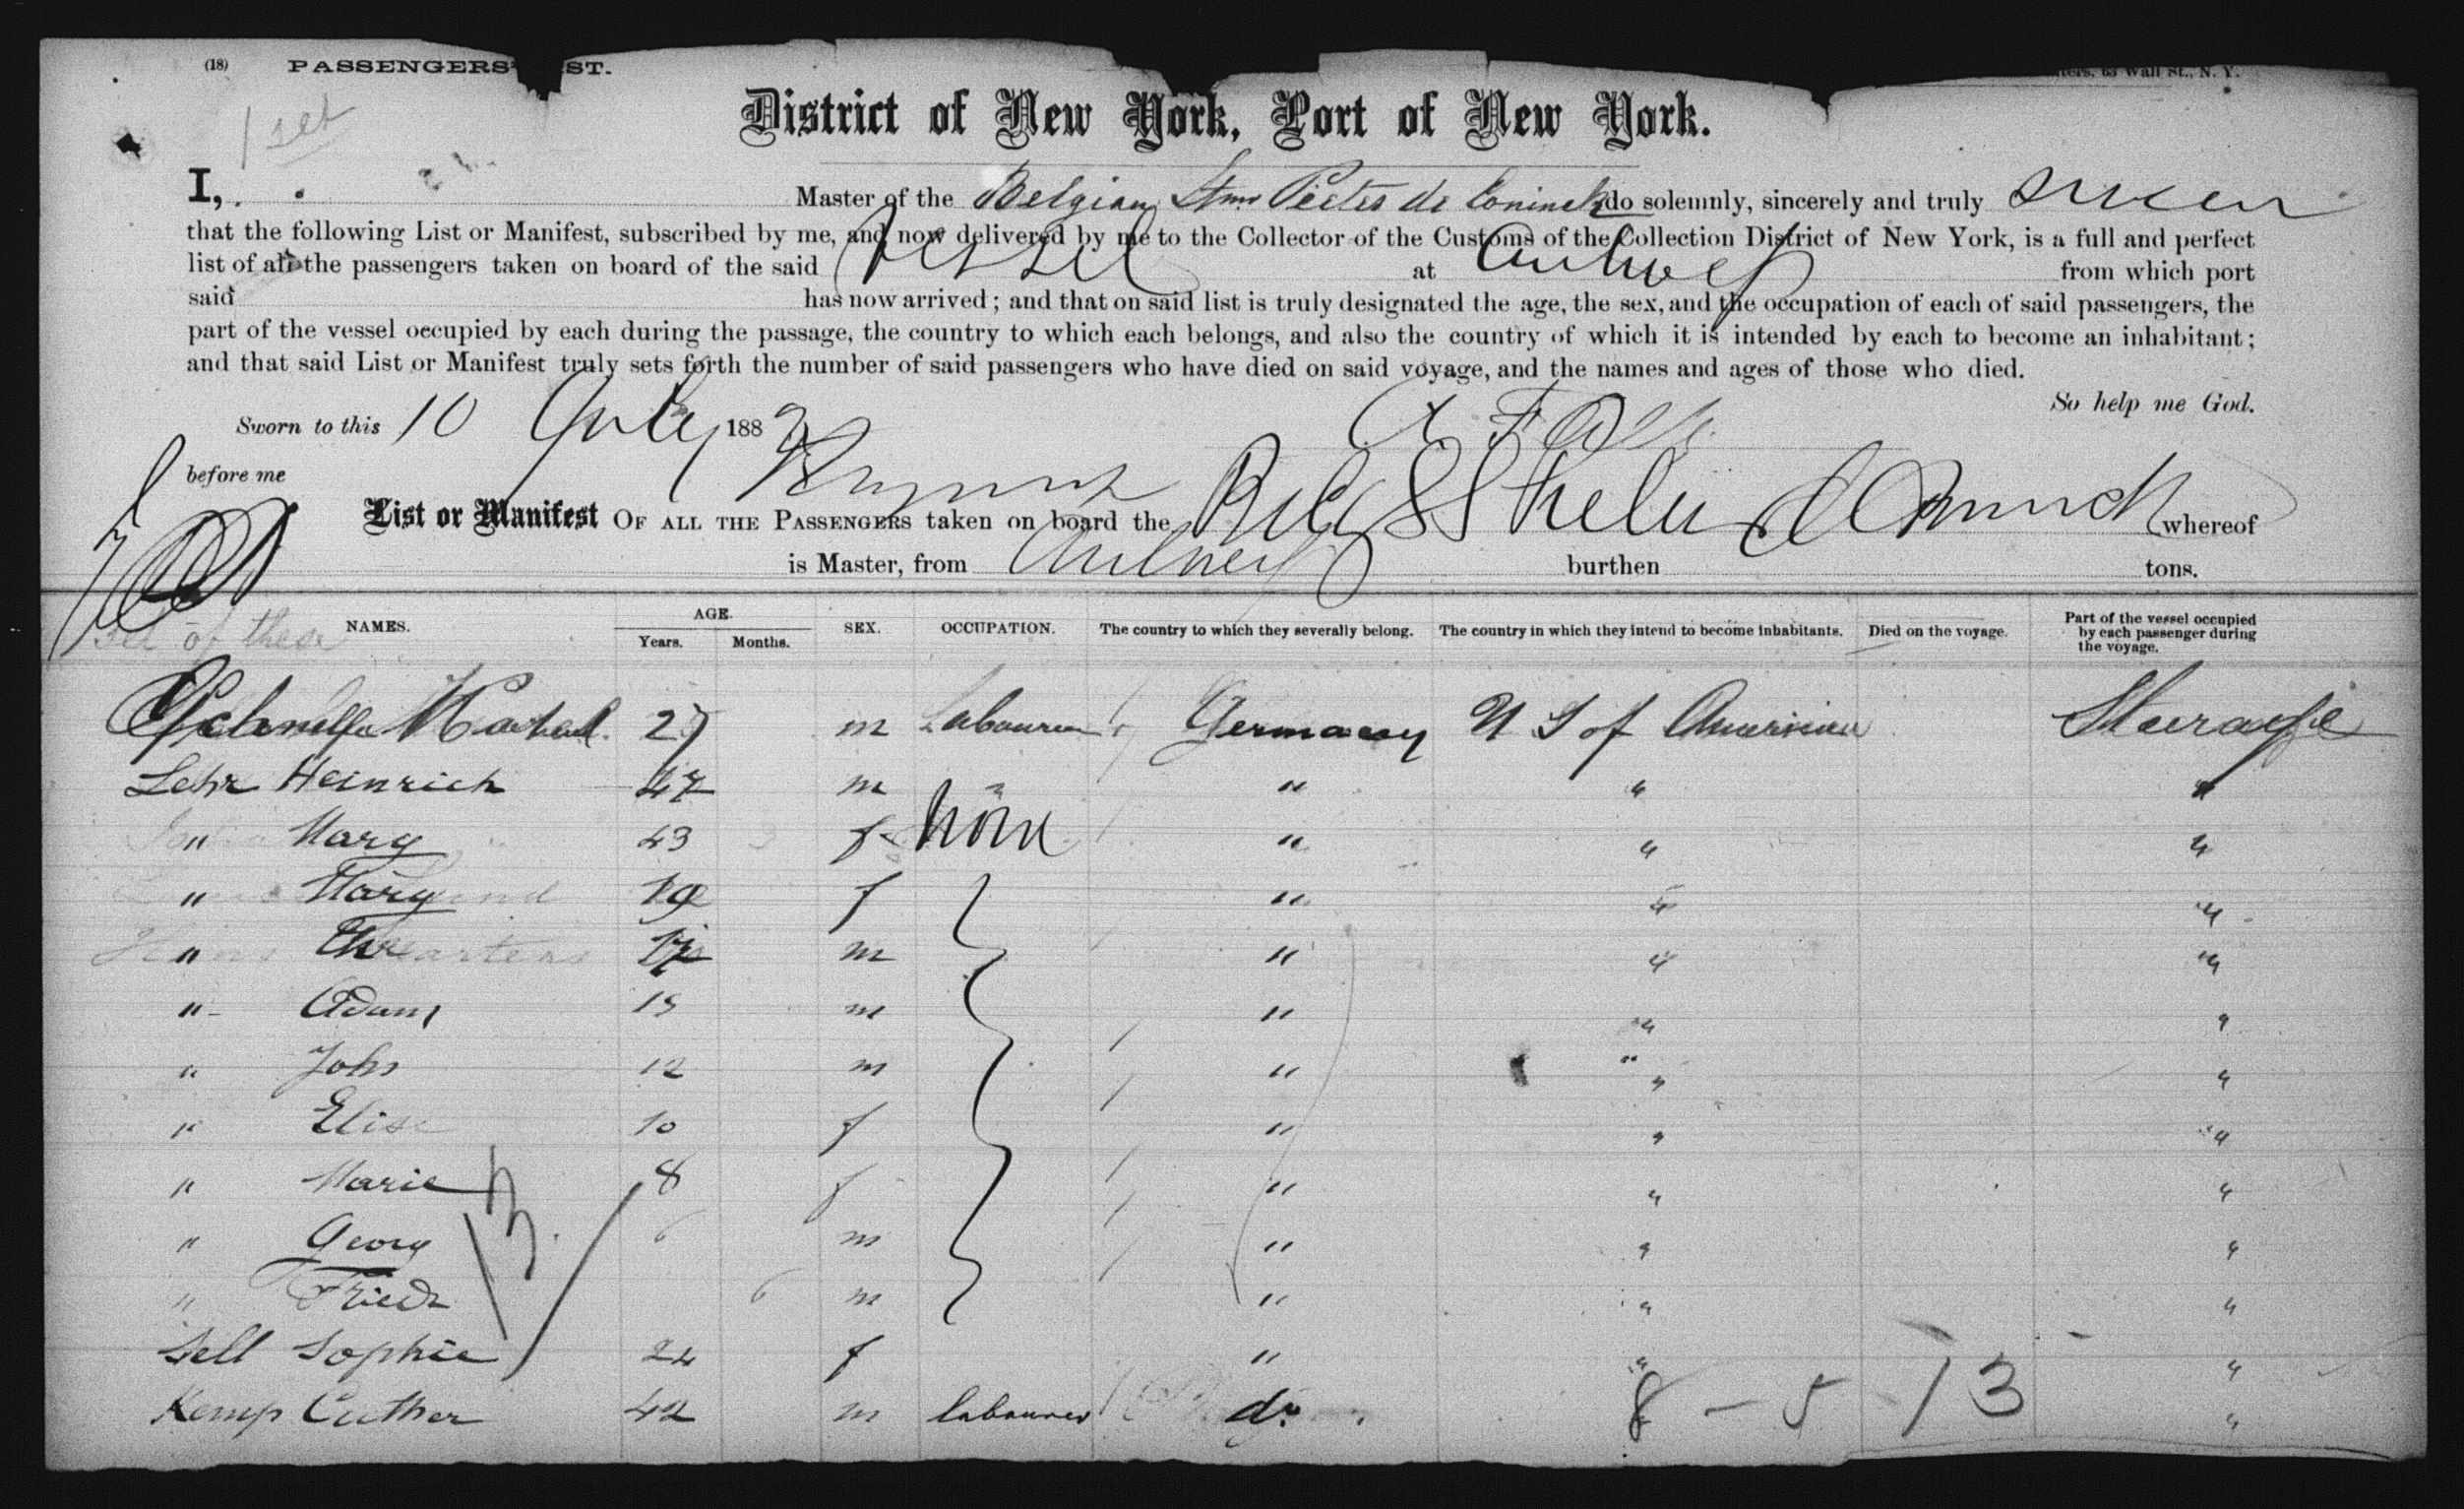 (18) PASSENGERS' ST.
63 Wall St., N. Y.
1 set
District of New York, Port of New York.
I, Master of the Belgian Stmr Pieter de Coninck do solemnly, sincerely and truly swear
that the following List or Manifest, subscribed by me, and now delivered by me to the Collector of the Customs of the Collection District of New York, is a full and perfect
list of all the passengers taken on board of the said Vessel at Antwerp from which port
said has now arrived; and that on said list is truly designated the age, the sex, and the occupation of each of said passengers, the
part of the vessel occupied by each during the passage, the country to which each belongs, and also the country of which it is intended by each to become an inhabitant;
and that said List or Manifest truly sets forth the number of said passengers who have died on said voyage, and the names and ages of those who died.
So help me God.
Sworn to this 10 July 188
before me
List or Manifest OF ALL THE PASSENGERS taken on board the whereof
is Master, from Antwerp burthen tons.
set of these
NAMES. AGE. Years. Months. SEX. OCCUPATION. The country to which they severally belong. The country in which they intend to become inhabitants. Died on the voyage. Part of the vessel occupied by each passenger during the voyage.
27 m Labourer Germany U S of America Steerage
Lehr Heinrich 47 m " " " "
" Mary 43 f none " " "
" Mary 19 f " " "
" Chr m " " "
" Adam 15 m " " "
" John 12 m " " "
" Elise 10 f " " "
" Marie 8 f " " "
" Georg 6 m " " "
" Friedr 6 m " " "
13
Sell Sophie 24 f " " "
Kemp Luther 42 m labourer do "
8 - 5 13